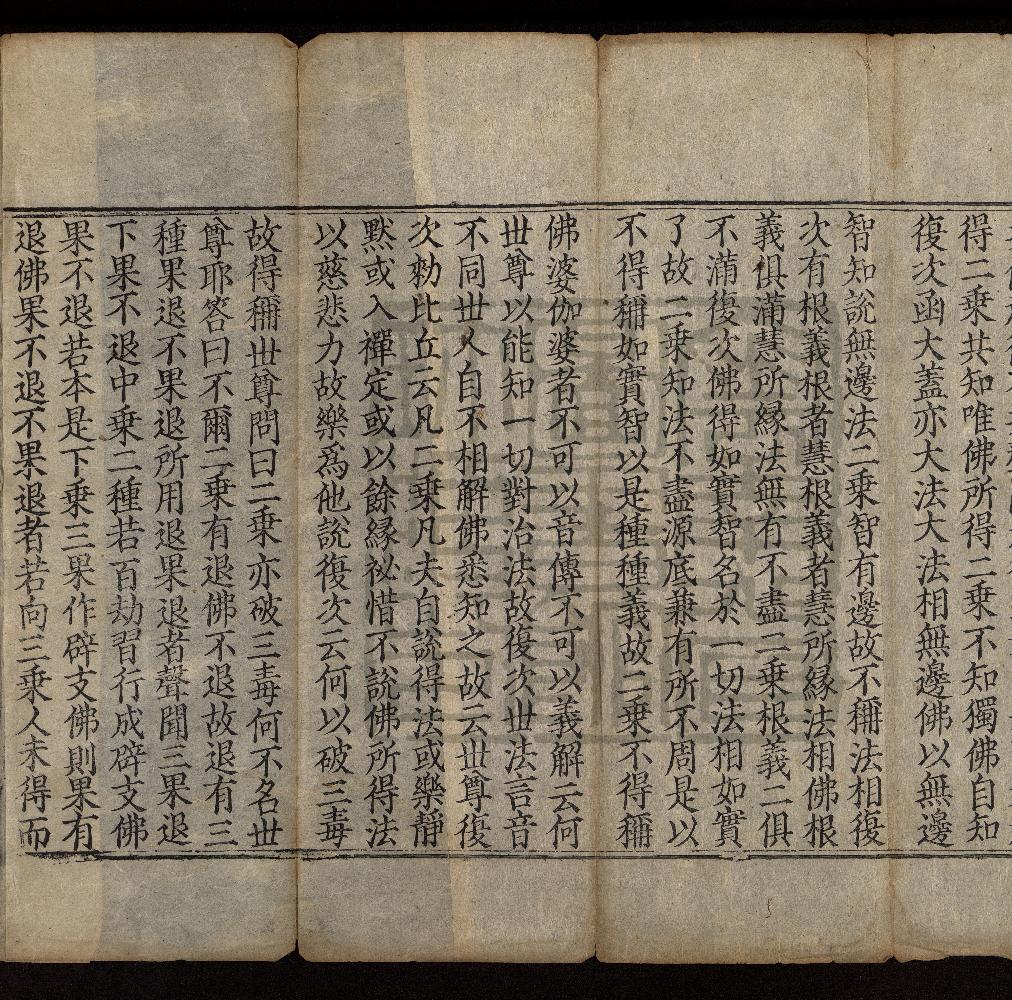 得二乗共知唯佛所得二乗不知獨佛自知
復次函大蓋亦大法大法相無邊佛以無邊
智知說無邊法二乗智有邊故不稱法相復
次有根義根者慧根義者慧所縁法相佛根
義俱滿慧所縁法無有不盡二乗根義二俱
不滿復次佛得如實智名於一切法相如實
了故二乗知法不盡源底兼有所不周是以
不得稱如實智以是種種義故二乗不得稱
佛婆伽婆者不可以音傳不可以義解云何
世尊以能知一切對治法故復次世法言音
不同世人自不相解佛悉知之故云世尊復
次勑比丘云凡二乗凡夫自說得法或樂靜
黙或入禪定或以餘縁祕惜不說佛所得法
以慈悲力故樂爲他說復次云何以破三毒
故得稱世尊問曰二乗亦破三毒何不名世
尊耶答曰不爾二乗有退佛不退故退有三
種果退不果退所用退果退者聲聞三果退
下果不退中乗二種若百劫習行成辟支佛
果不退若本是下乗三果作辟支佛則果有
退佛果不退不果退者若向三乗人未得而